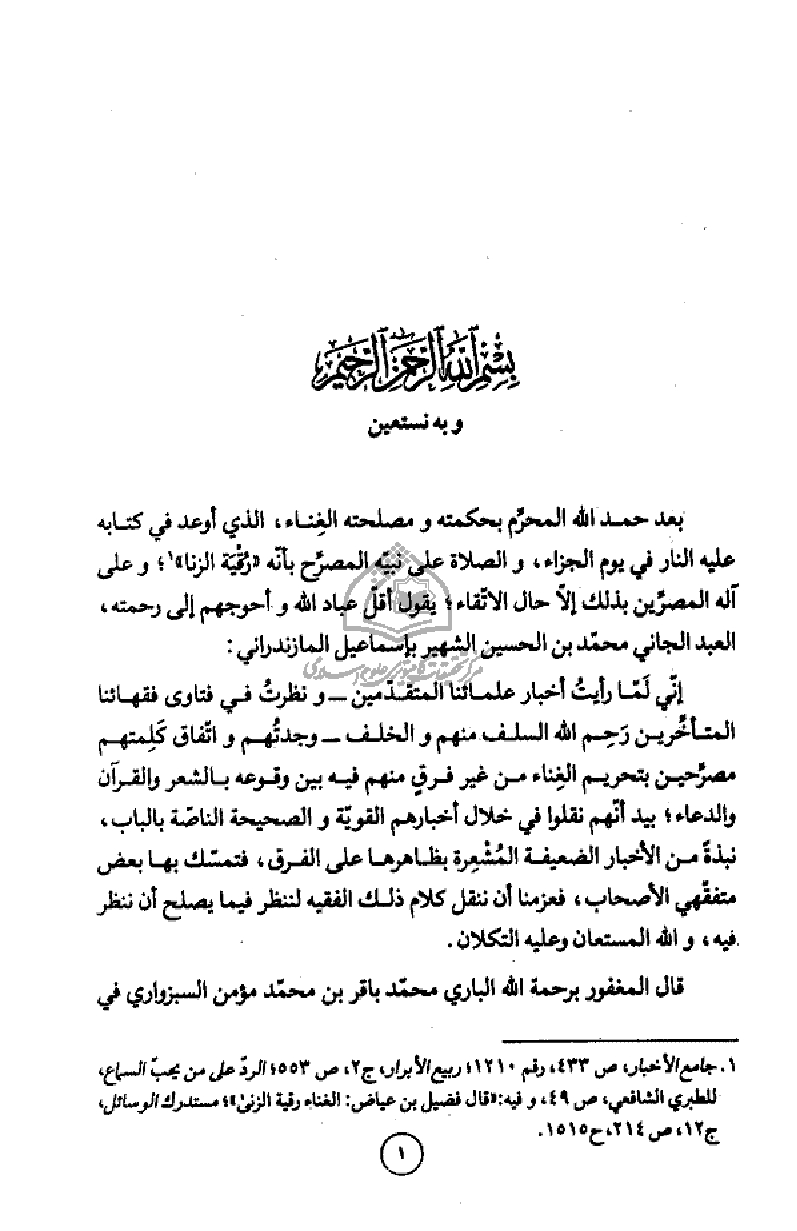 بِسْمِ اللهِ الرَّحمنِ الرَّحيمِ
و به نستعين
بعد حمد الله المحرّم بحكمته و مصلحته الغِناء، الذي أوعد في كتابه
عليه النار في يوم الجزاء، و الصلاة على نبيّه المصرِّح بأنّه «رُقْيَة الزنا»١؛ و على
آله المصرِّين بذلك إلاّ حال الاتّقاء؛ يقول أقلّ عباد الله و أحوجهم إلى رحمته،
العبد الجاني محمّد بن الحسين الشهير بإسماعيل المازندراني:
إنّي لَمّا رأيتُ أخبار علمائنا المتقدّمين ـ و نظرتُ في فتاوى فقهائنا
المتأخّرين رَحِم الله السلف منهم و الخلف ـ وجدتُهم و اتّفاق كَلِمتهم
مصرِّحين بتحريم الغِناء من غير فرقٍ منهم فيه بين وقوعه بالشعر والقرآن
والدعاء؛ بيد أنّهم نقلوا في خلال أخبارهم القويّة و الصحيحة الناصّة بالباب،
نبذةً من الأخبار الضعيفة المُشْعِرة بظاهرها على الفرق، فتمسّك بها بعض
متفقّهي الأصحاب، فعزمنا أن ننقل كلام ذلك الفقيه لننظر فيما يصلح أن ننظر
فيه، و الله المستعان وعليه التكلان.
قال المغفور برحمة الله الباري محمّد باقر بن محمّد مؤمن السبزواري في
١. جامع الأخبار، ص ٤٣٣، رقم ١٢١٠؛ ربيع الأبرار، ج٢، ص ٥٥٣؛ الردّ على من يحبّ السماع،
للطبري الشافعي، ص ٤٩، و فيه: «قال فضيل بن عياض: الغناء رقية الزنى»؛ مستدرك الوسائل،
ج١٢، ص ٢١٤، ح١٥١٥.
١
مركز تحقيقات كامپيوترى علوم اسلامى